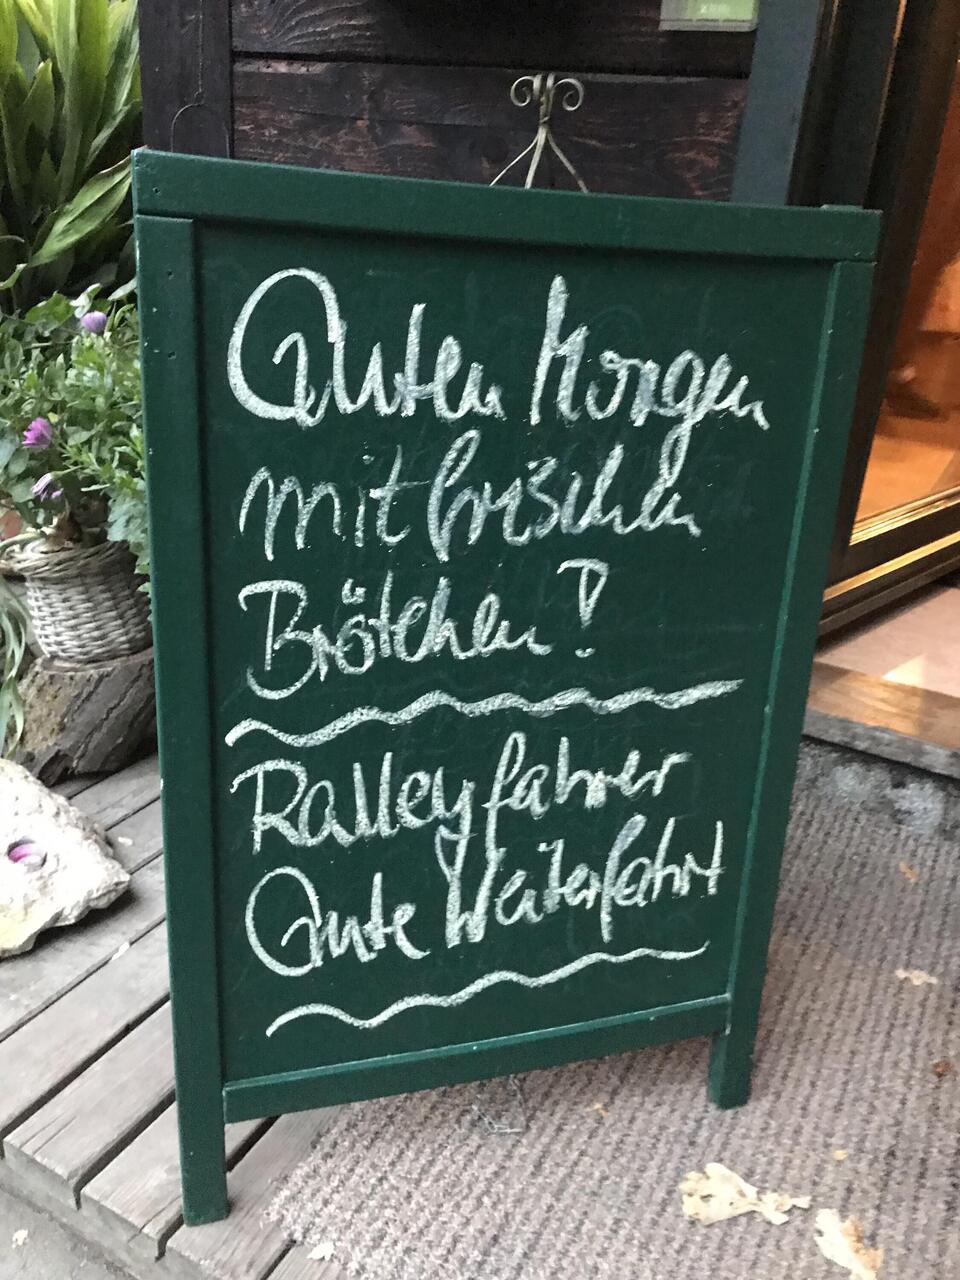 Guten Morgen
mit frischen
Brötchen!
Ralleyfahrer
Gute Weiterfahrt